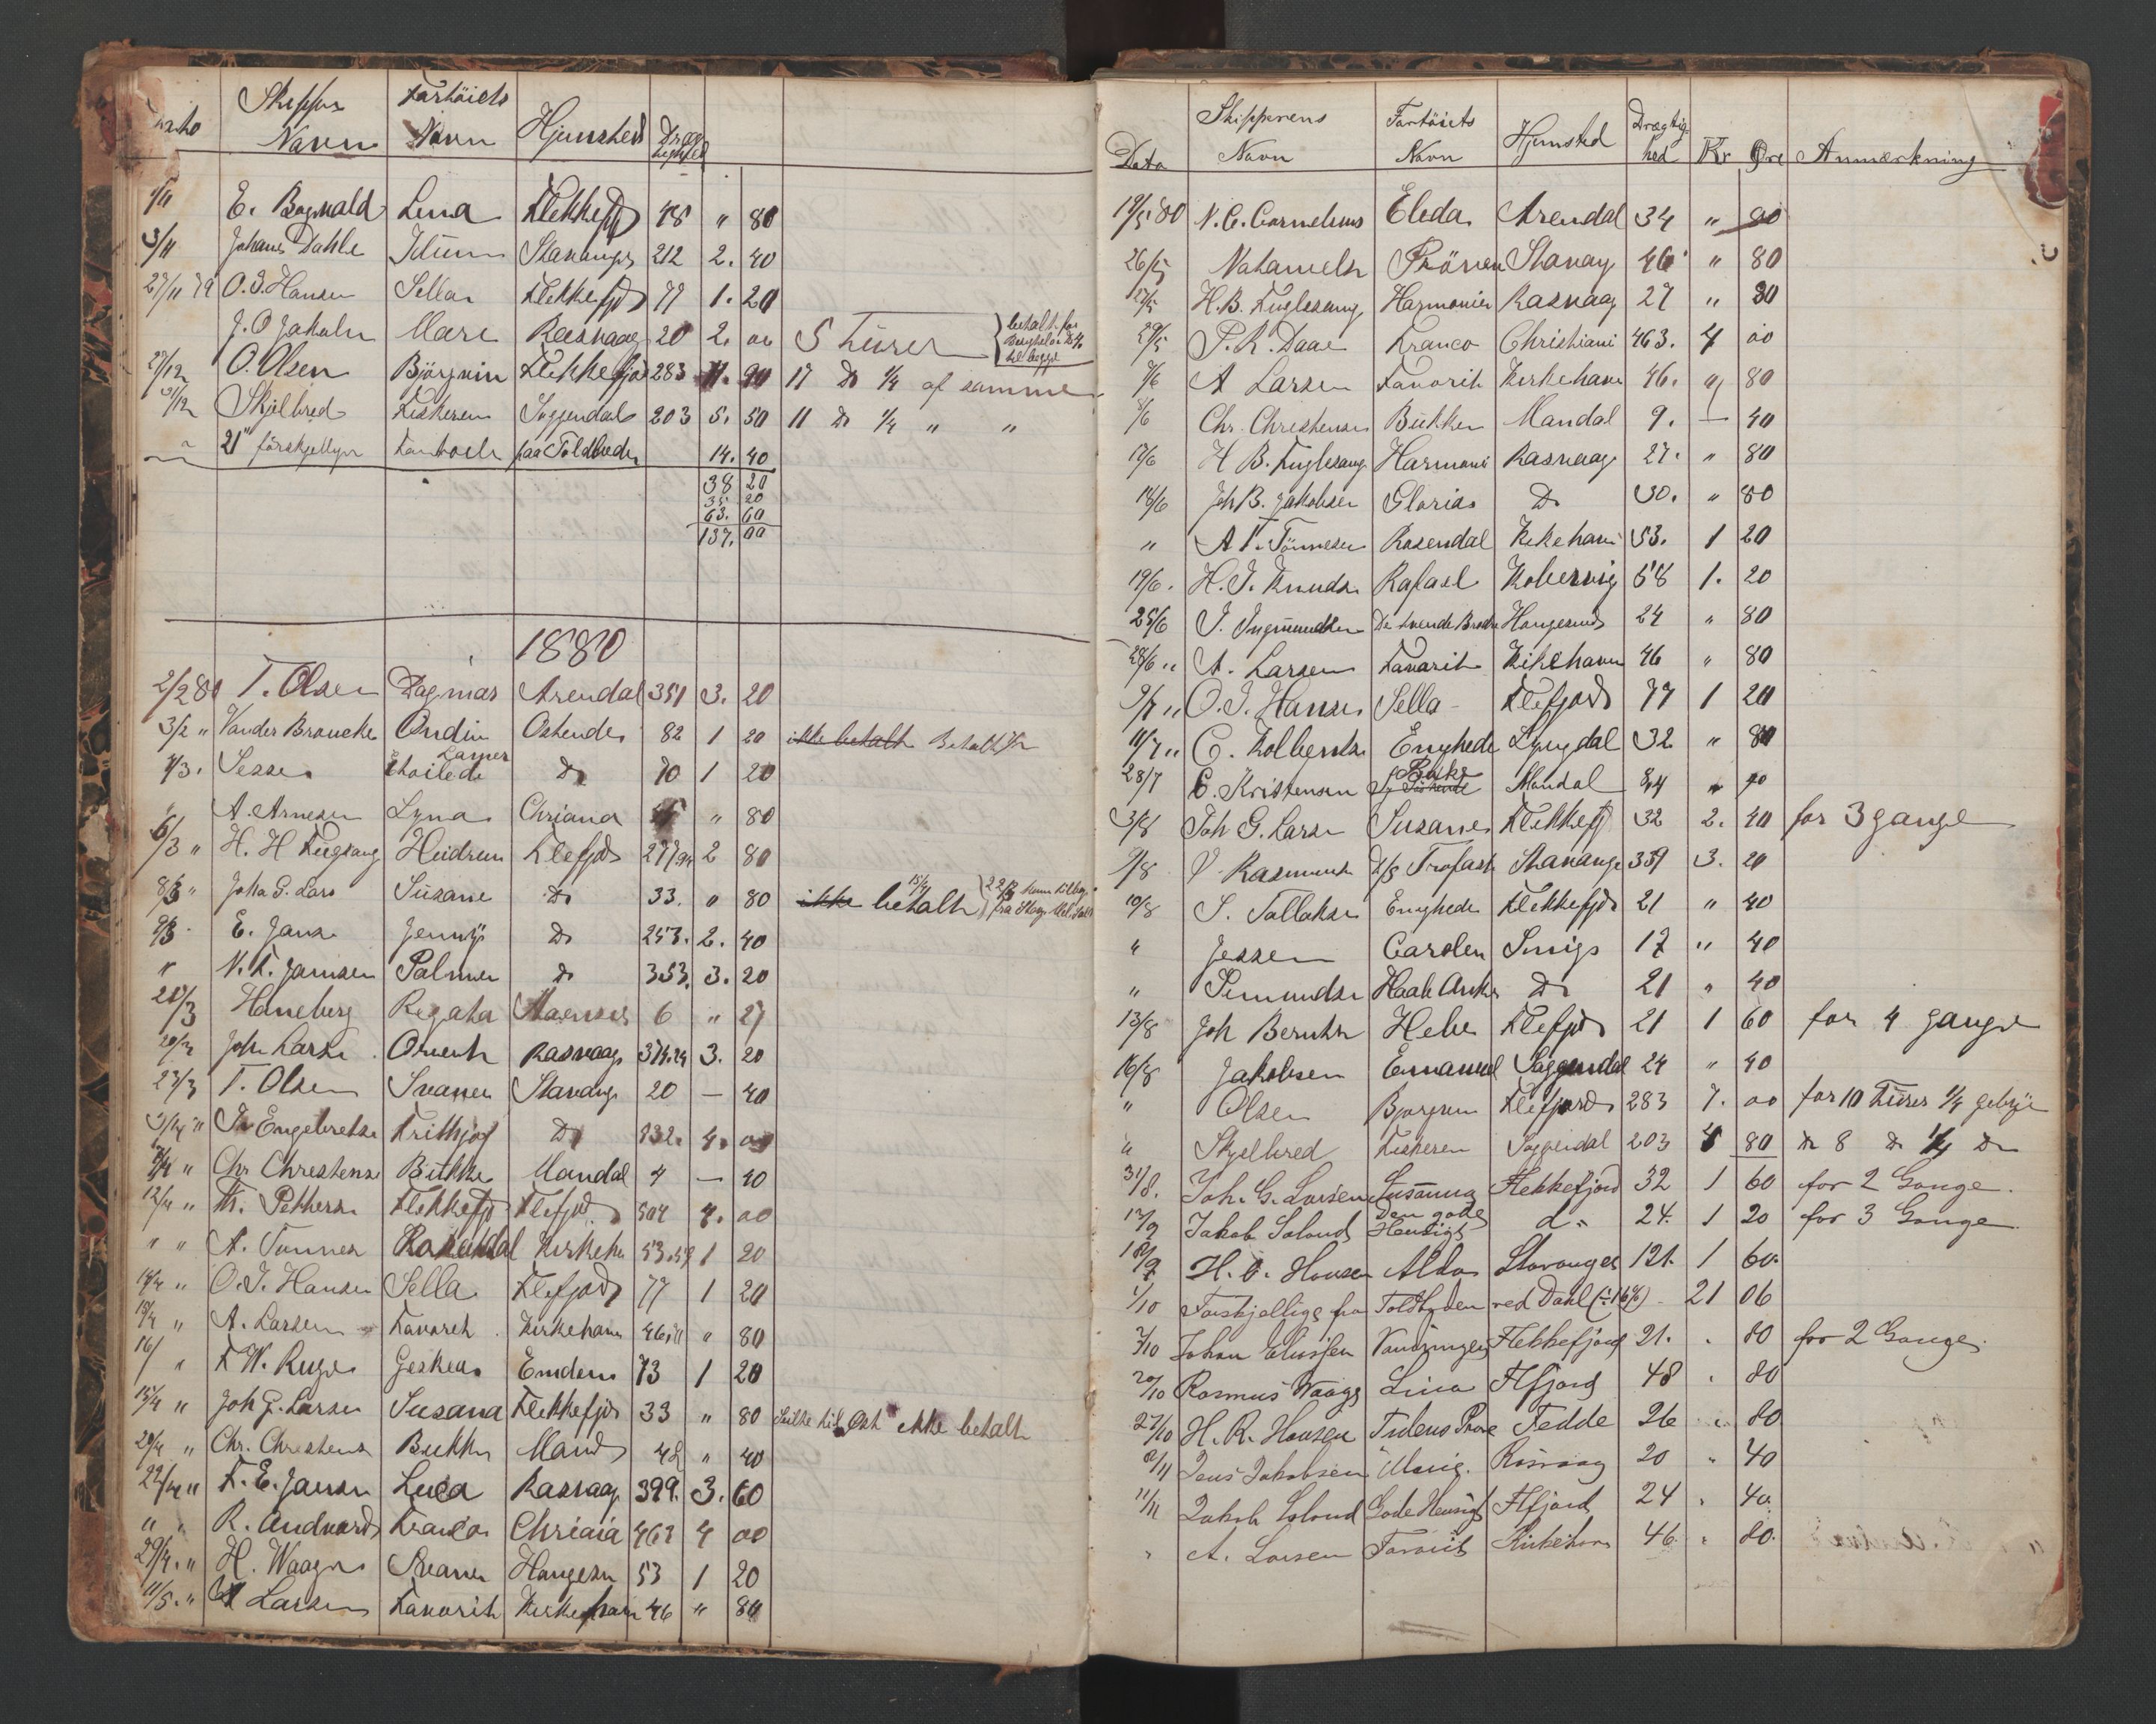 Skippers Fartöiets
Dato Navn Navn Hjemsted Drægtighed
1/11 E. Bognald Lina Flekkefjd 48 " 80
3/11 Johans Dahle Idun Stavanger 212 2. 40
27/11 79 O. J. Hansen Sella Flekkefjd 77 1. 20
J. O Jakobsn Marie Rasvaag 20 2. 00 5 Turer
27/12 O. Olsen Björgvin Flekkefjord 283 11. 90 17 Do 1/4 af samme
31/12 Skjelbred Fiskeren Soggendal 203 5. 50 11 Do 1/4 " "
21 forskjellige paa Toldboden 14. 40
38 20
35 20
63. 60
137. 00
1880
2/2 80 T. Olsen Dagmar Arendal 351 3. 20
3/2 " Vander Broucke Ondin Ostende 82 1 20 ikke betalt Betalt
4/3. Sesse Etoilede Lamer Do 70 1 20
" A. Arnesen Lyna Chriana " 80
6/3 " H. H Fugsang Heidrun Flefjd 277,94 2 80
8/3 " Joha G. Lars Susane Do 33. " 80 ikke betalt 15/4
9/3 E. Jans Jenny Do 253. 2. 40
" N. F. Jansen Palmer Do 353. 3. 20
20/3 Haneburg Regata 6 " 27
20/3 Joh. Larsn Orient Rasvaag 374.24 3. 20
27/3 T. Olsen Svanen Stavang 20 — 40
3/4 " Engebretsn Frithjof Do 932. 4. 00
Chr Christensn Bukken Mandal 4 — 40
12/4 " Th. Pettersn Flekkefjd Flefjd 504 4. 00
" " A. Tönnes Rosendal Kirkeha 53.59 1 20
14/4 " O. J. Hansen Sella Flefjord 77 1 20
15/4 " A. Larsen Favorit Kirkehavn 46, " 80
16/ " F W. Ruge Geskea Emden 73 1 20
15/4 " Joh G. Larsen Susana Flekkefjd 33 " 80 Seilte til Öst ikke betalt
20/4 " Chr. Christens Bukkn Mand " 40
22/4 " F. E. Jansen Luca Rasvaag 399. 3. 60
" " R. Andvord Franco Chriania 463 4 00
29/4. " H. Waage Svanen Haugesn 53 1 20
11/5. " A Larsen Favorit Kirkehavn 46 " 80
Skipperens Fartöiets Drægtig
Dato Navn Navn Hjemsted hed Kr Öre Anmærkning
19/5 80 N. C. Cornelius Eleda Arendal 34 " 80
26/5 Natanielsn Prövien Stavang 46 " 80
27/5 H. B. Fuglesang Harmonien Rasvaag 27 " 80
29/5 P. R. Daae Franco Christiani 463. 4 00
7/6 A Larsen Favorit Kirkehavn 46. " 80
8/6 Chr. Christensen Bukken Mandal 9. — 40
12/6 H B. Fuglesang Harmoni Rasvaag 27. " 80
18/6 Joh B. Jakobsen Gloria Do 30. " 80
" A T. Tönnesen Rosendal Kirkehavn 53. 1 20
19/6. H. J. Knudsn Rafael Kobervig 58 1. 20
25/6 J. Ingmundsen De tvende Brödre Haugesund 24 " 80
28/6 " A. Larsen Favorit Kirkehavn 46 " 80
9/7 " O. J. Hansen Sella Flefjord 77 1 20
11/7 " C. Tolbentsn Enighede Lyngdal 32 " 80
28/7 C. Kristensen Bukke Mandal 84 " 40
3/8 Joh G. Larsn Susane Flekkefj 32 2. 40 for 3 gange
9/8 V Rasmusn D/S Trofast Stavange 339 3. 20
10/8 S. Tollaksn Enighede Flekkefjd 21 " 40
" Jessen Carolen Snigs 17 " 40
" Semundsn Haab Anke Do 21 " 40
13/8 Joh Berntsn Hebe Flefjd 21 1 60 for 4 gange
16/8 Jakobsen Emanuel Soggendal 24 " 40
" Olsen Bjorgvin Flefjord 283 7. 00 for 10 Turer 1/4 gebyr
" Skjelbred Fiskeren Soggendal 203 5 80 Do 8 Do 1/4 Do
31/8. Joh. G. Larsen Susanna Flekkefjord 32 1 60 for 2 Gange.
12/9 Jakob Soland Den gode Hensigt do 24. 1 20 for 3 Gange
18/9 H. O. Hansen Alda Stavanger 121. 1 60.
1/10 Forskjellige fra Toldboden ved Dahl (÷ 16%) 21 06
7/10 Johan Eliassen Vandringen Flekkefjord 21. . 80 for 2 Gange.
20/10 Rasmus Waage Lina Flfjord 48 . 80
27/10 H. R. Hansen Tidens Pröve Fedde 26 . 80
8/11 Jens Jakobsen Marie. Rasvaag 20 . 40
11/11 Jakob Soland Gode Hensigt Flfjord 24 . 40.
" A. Larsen Favorit Kirkehavn 46. . 80.